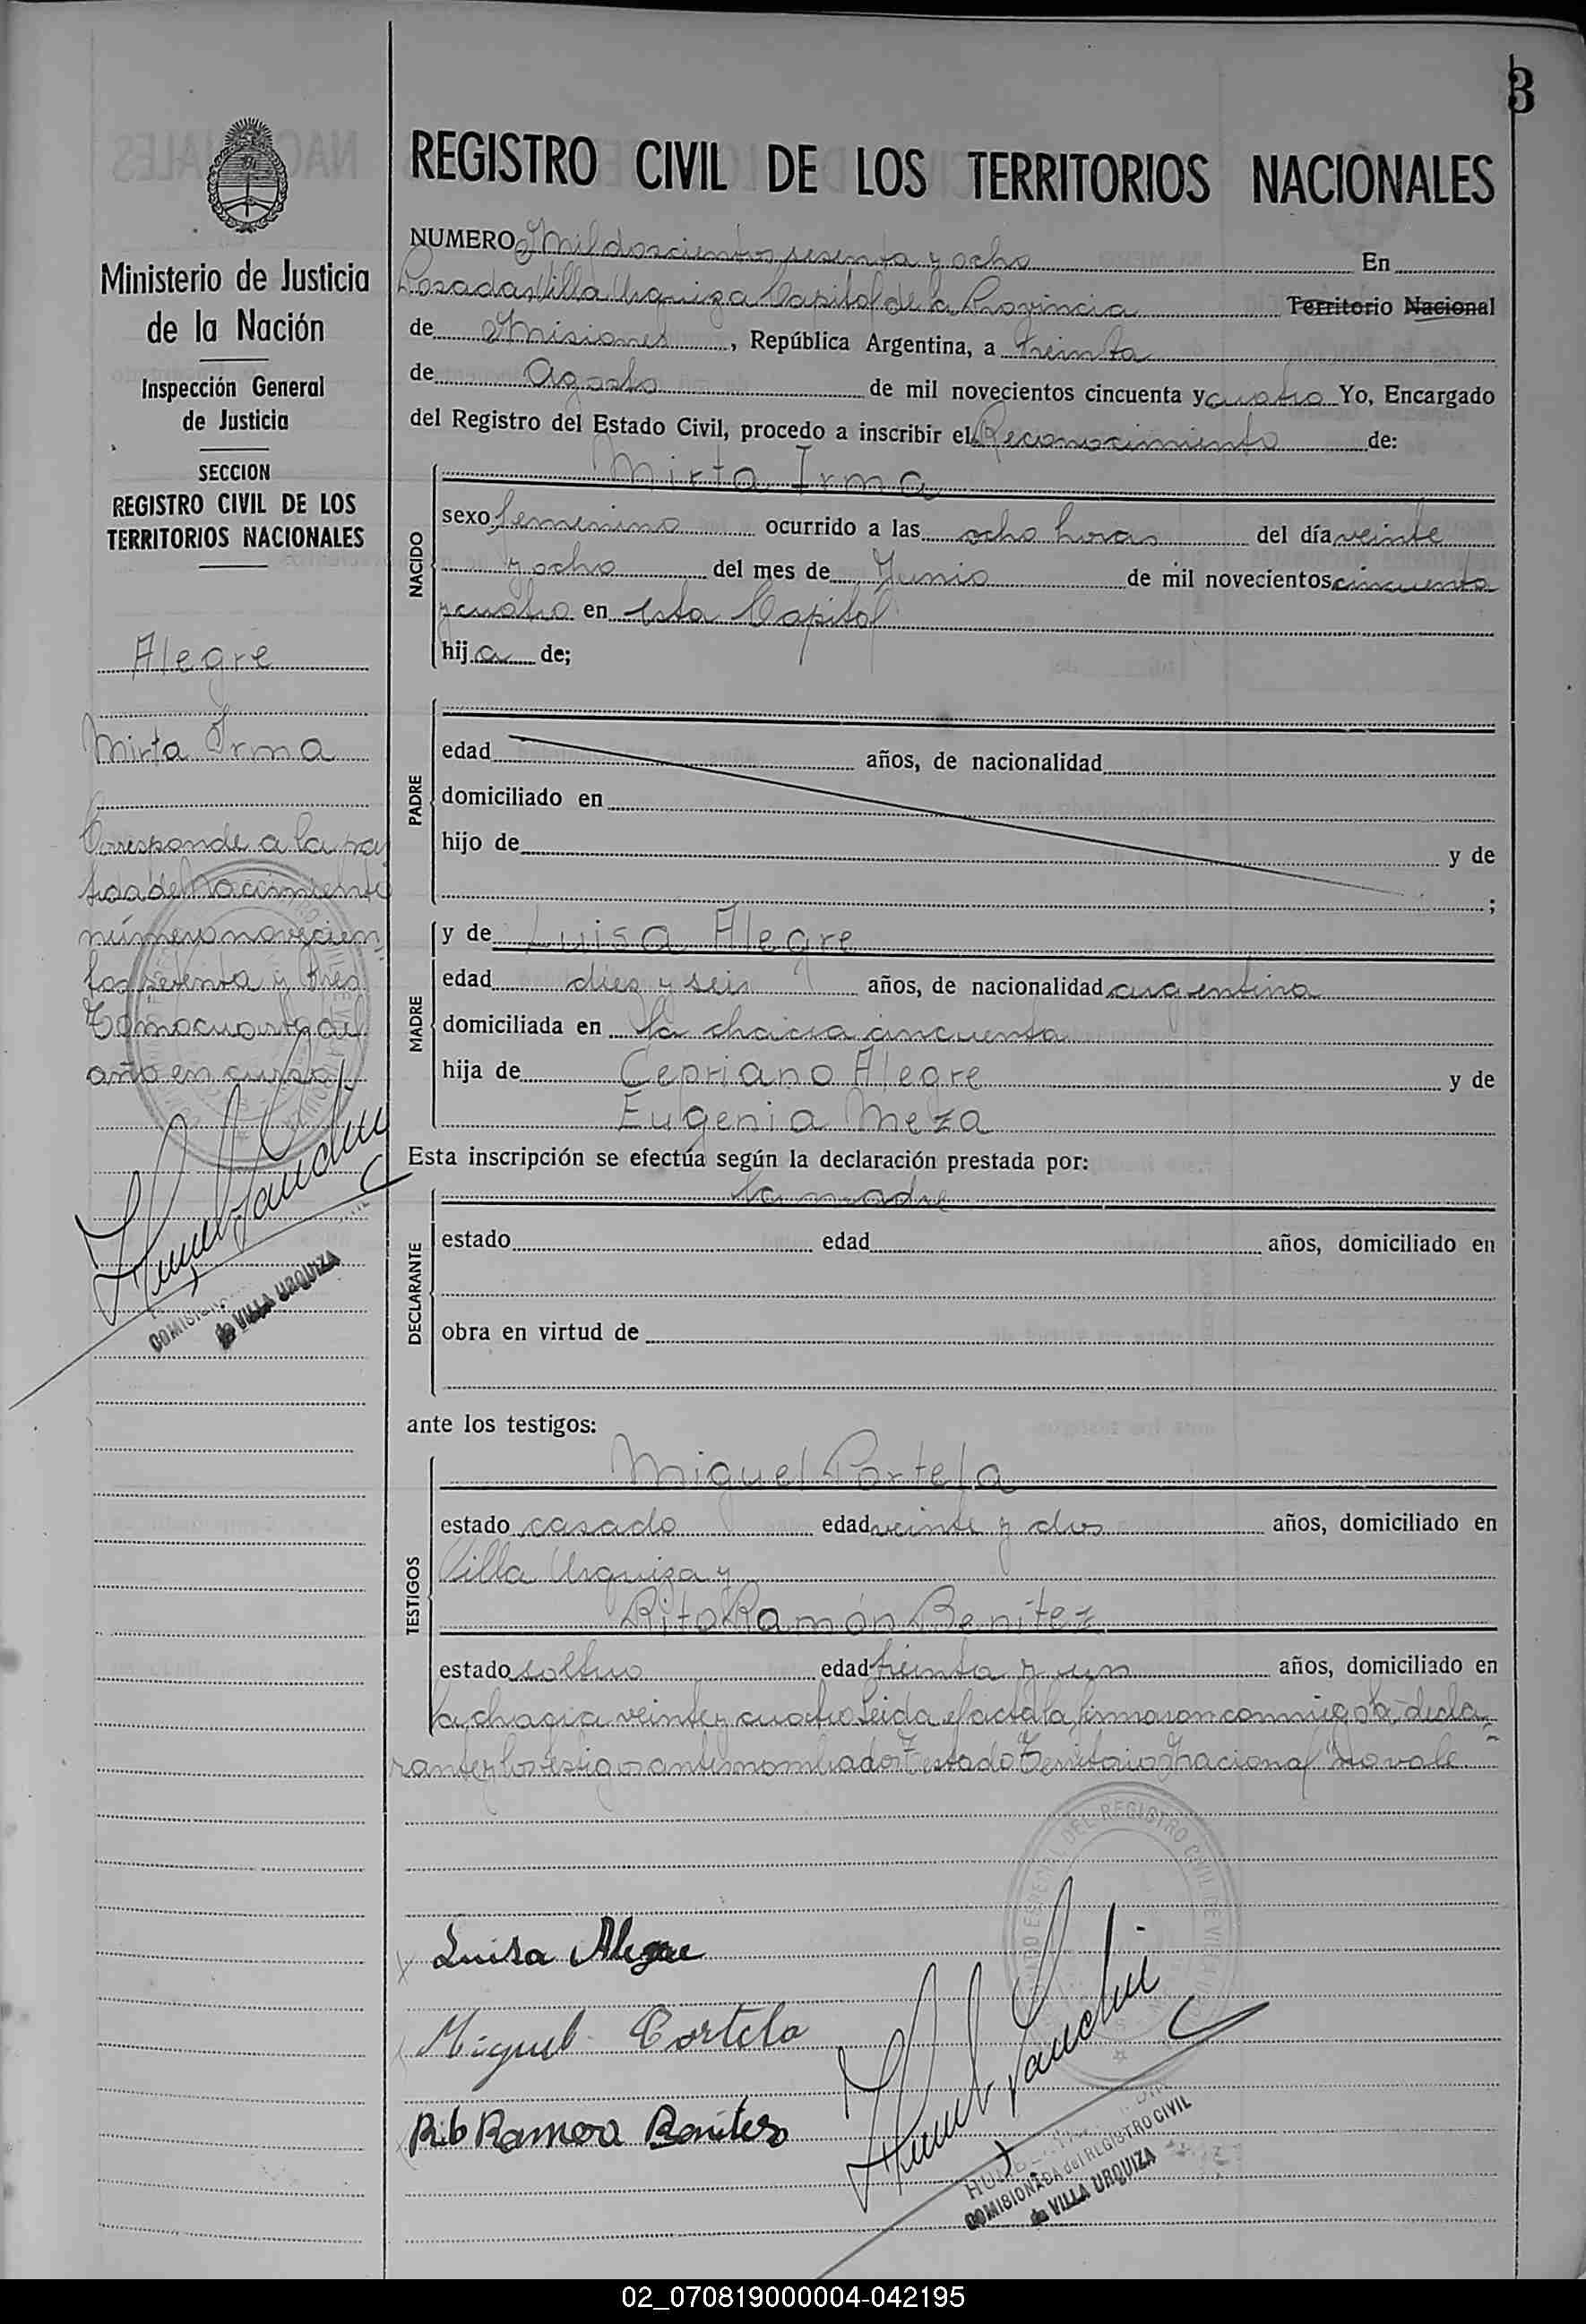 3
REGISTRO CIVIL DE LOS TERRITORIOS NACIONALES
Ministerio de Justicia
de la Nación
Inspección General
de Justicia
SECCION
REGISTRO CIVIL DE LOS
TERRITORIOS NACIONALES
Alegre
Mirta Irma
Corresponde a la par
tida de Nacimiento
número novecien
tos setenta y tres
Tomo cuarto del
año en curso
de VILLA URQUIZA
NUMERO Mil doscientos sesenta y ocho En
Posadas Villa Urquiza Capital de la Provincia Territorio Nacional
de Misiones, República Argentina, a treinta
de Agosto de mil novecientos cincuenta y cuatro Yo, Encargado
del Registro del Estado Civil, procedo a inscribir el Reconocimiento de:
Mirta Irma
NACIDO
sexo femenino ocurrido a las ocho horas del día veinte
y ocho del mes de Junio de mil novecientos cincuenta
y cuatro en esta Capital
hija de;
PADRE
edad años, de nacionalidad
domiciliado en
hijo de y de
;
MADRE
y de Luisa Alegre
edad dies y seis años, de nacionalidad argentina
domiciliada en la chacra cincuenta
hija de Cepriano Alegre y de
Eugenia Meza
Esta inscripción se efectúa según la declaración prestada por:
la madre
DECLARANTE
estado edad años, domiciliado en
obra en virtud de
ante los testigos:
Miguel Portela
TESTIGOS
estado casado edad veinte y dos años, domiciliado en
Villa Urquiza y
Rito Ramón Benitez
estado soltero edad treinta y un años, domiciliado en
la chacra veinte y cuatro Leida el acta la firmaron conmigo la decla-
rante y los testigos antes nombrados Testado "Territorio Nacional" No vale
DEL REGISTRO CIVIL DE VILLA
Luisa Alegre
Miguel Portela
Rito Ramon Benites
COMISIONADA del REGISTRO CIVIL
de VILLA URQUIZA
02_070819000004-042195